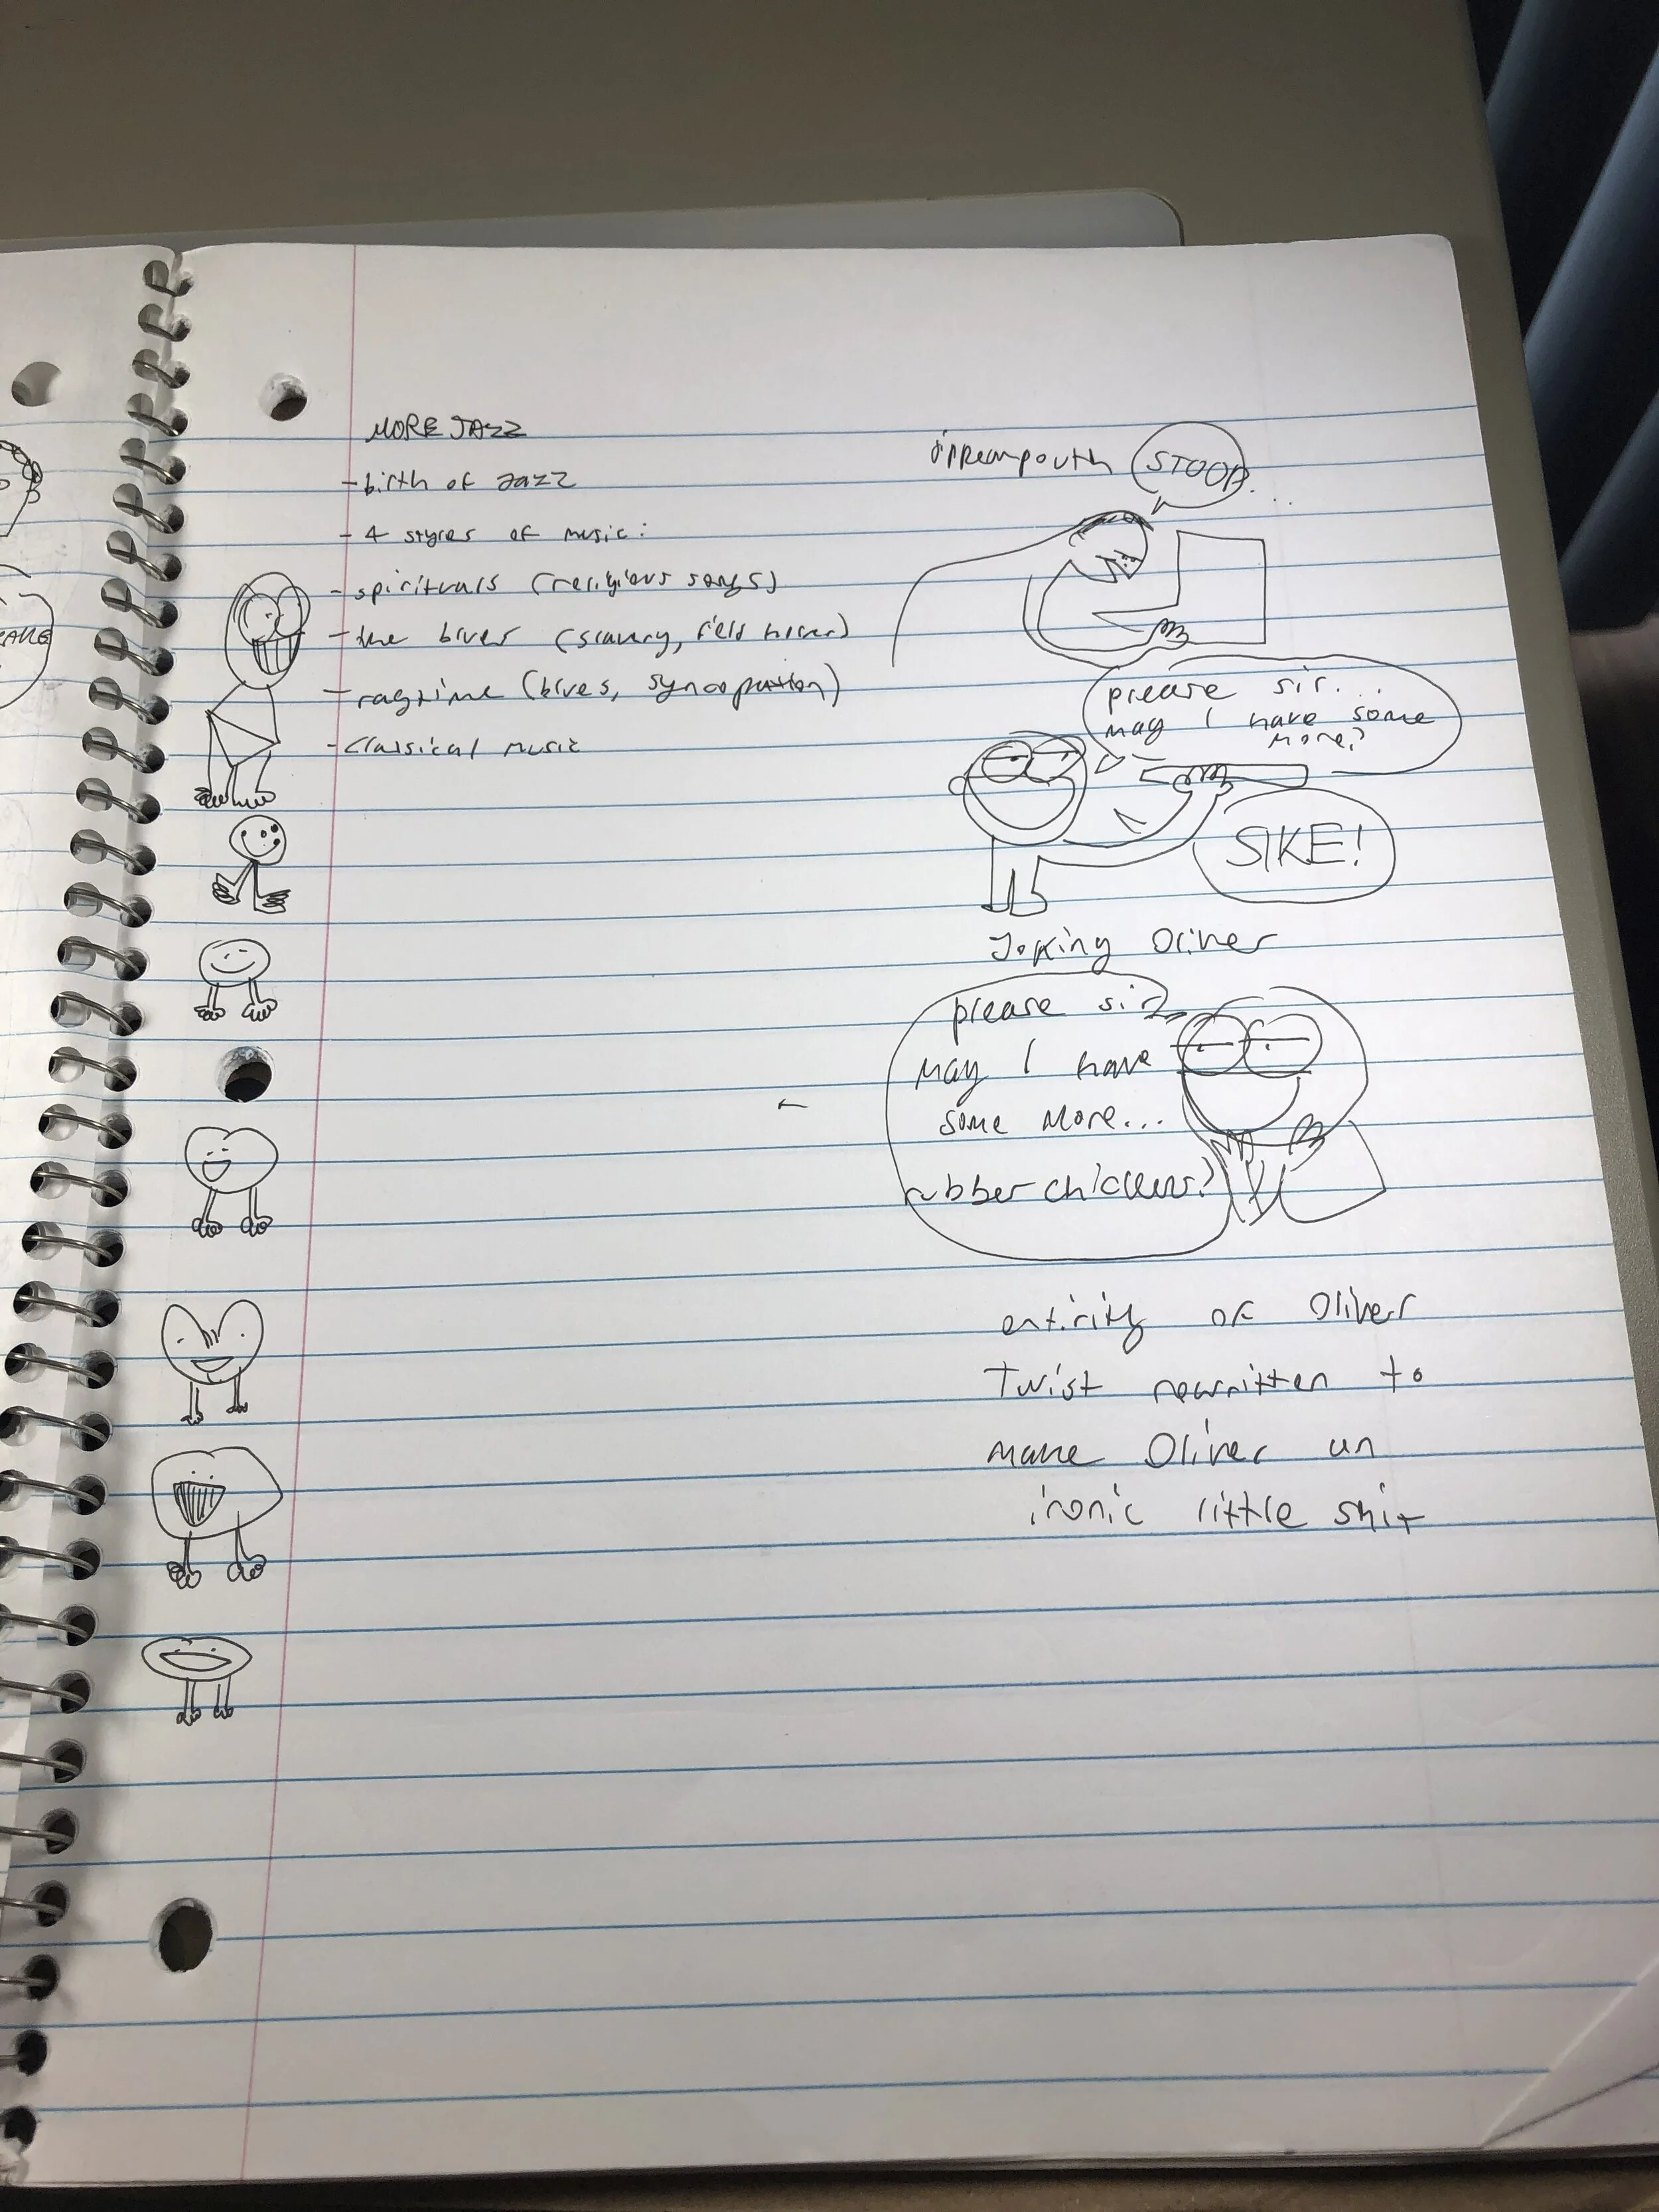 MORE JAZZ
- birth of Jazz
- 4 styles of music:
- spirituals (religious songs)
- the blues (slavery, field holler)
- ragtime (blues, syncopation)
- classical music
STOOP...
please sir...
may I have some
more?
SIKE!
Joking Oliver
please sir,
may I have
some more...
rubber chickens?
entirity of Oliver
Twist rewritten to
make Oliver un
ironic little shit